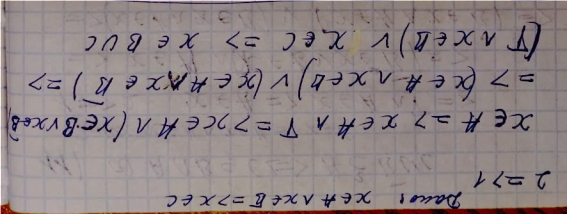 Дано: x∈A ∧ x∈B̅ => x∈C
2 => 1
x∈A => x∈A ∧ T => x∈A ∧ (x∈B ∨ x∈B̅)
=> (x∈A ∧ x∈B) ∨ (x∈A ∧ x∈B̅) =>
(T ∧ x∈B) ∨ x∈C => x∈B∪C